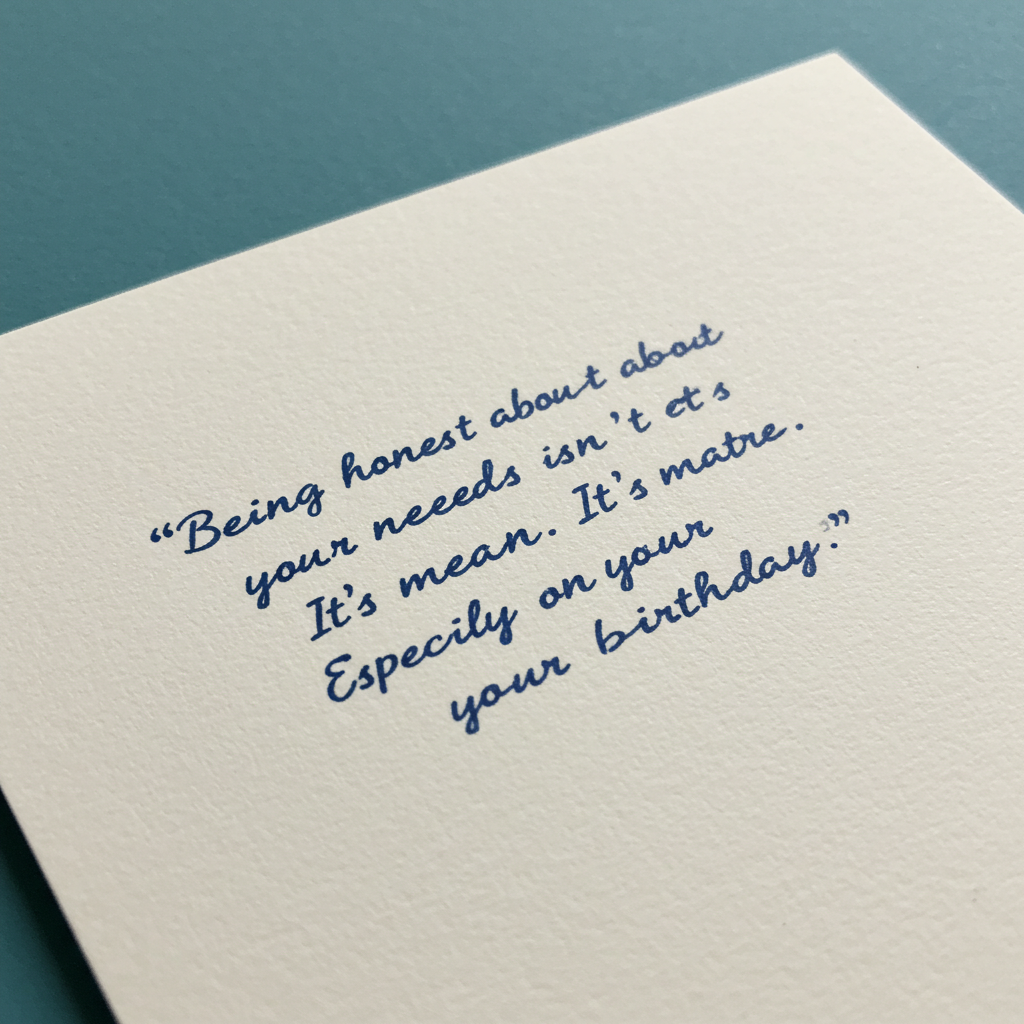 “Being honest about about
your neeeds isn't ets
It's mean. It's matre.
Especily on your
your birthday.”